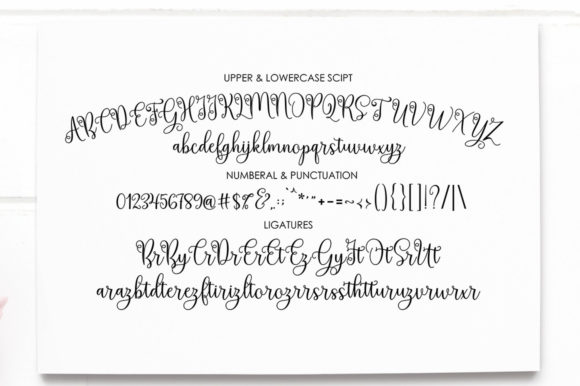 UPPER & LOWERCASE SCIPT
ABCDEFGHIJKLMNOPQRSTUVWXYZ
abcdefghijklmnopqrstuvwxyz
NUMBERAL & PUNCTUATION
0123456789@#$%&.,:;`^*'"+-=~<>(){}[]!?/|\
LIGATURES
BrByCrDrErEtEzGyItOtSrUt
arazbtdterezftirizltorozrrsrssthttturuzvrwrxr